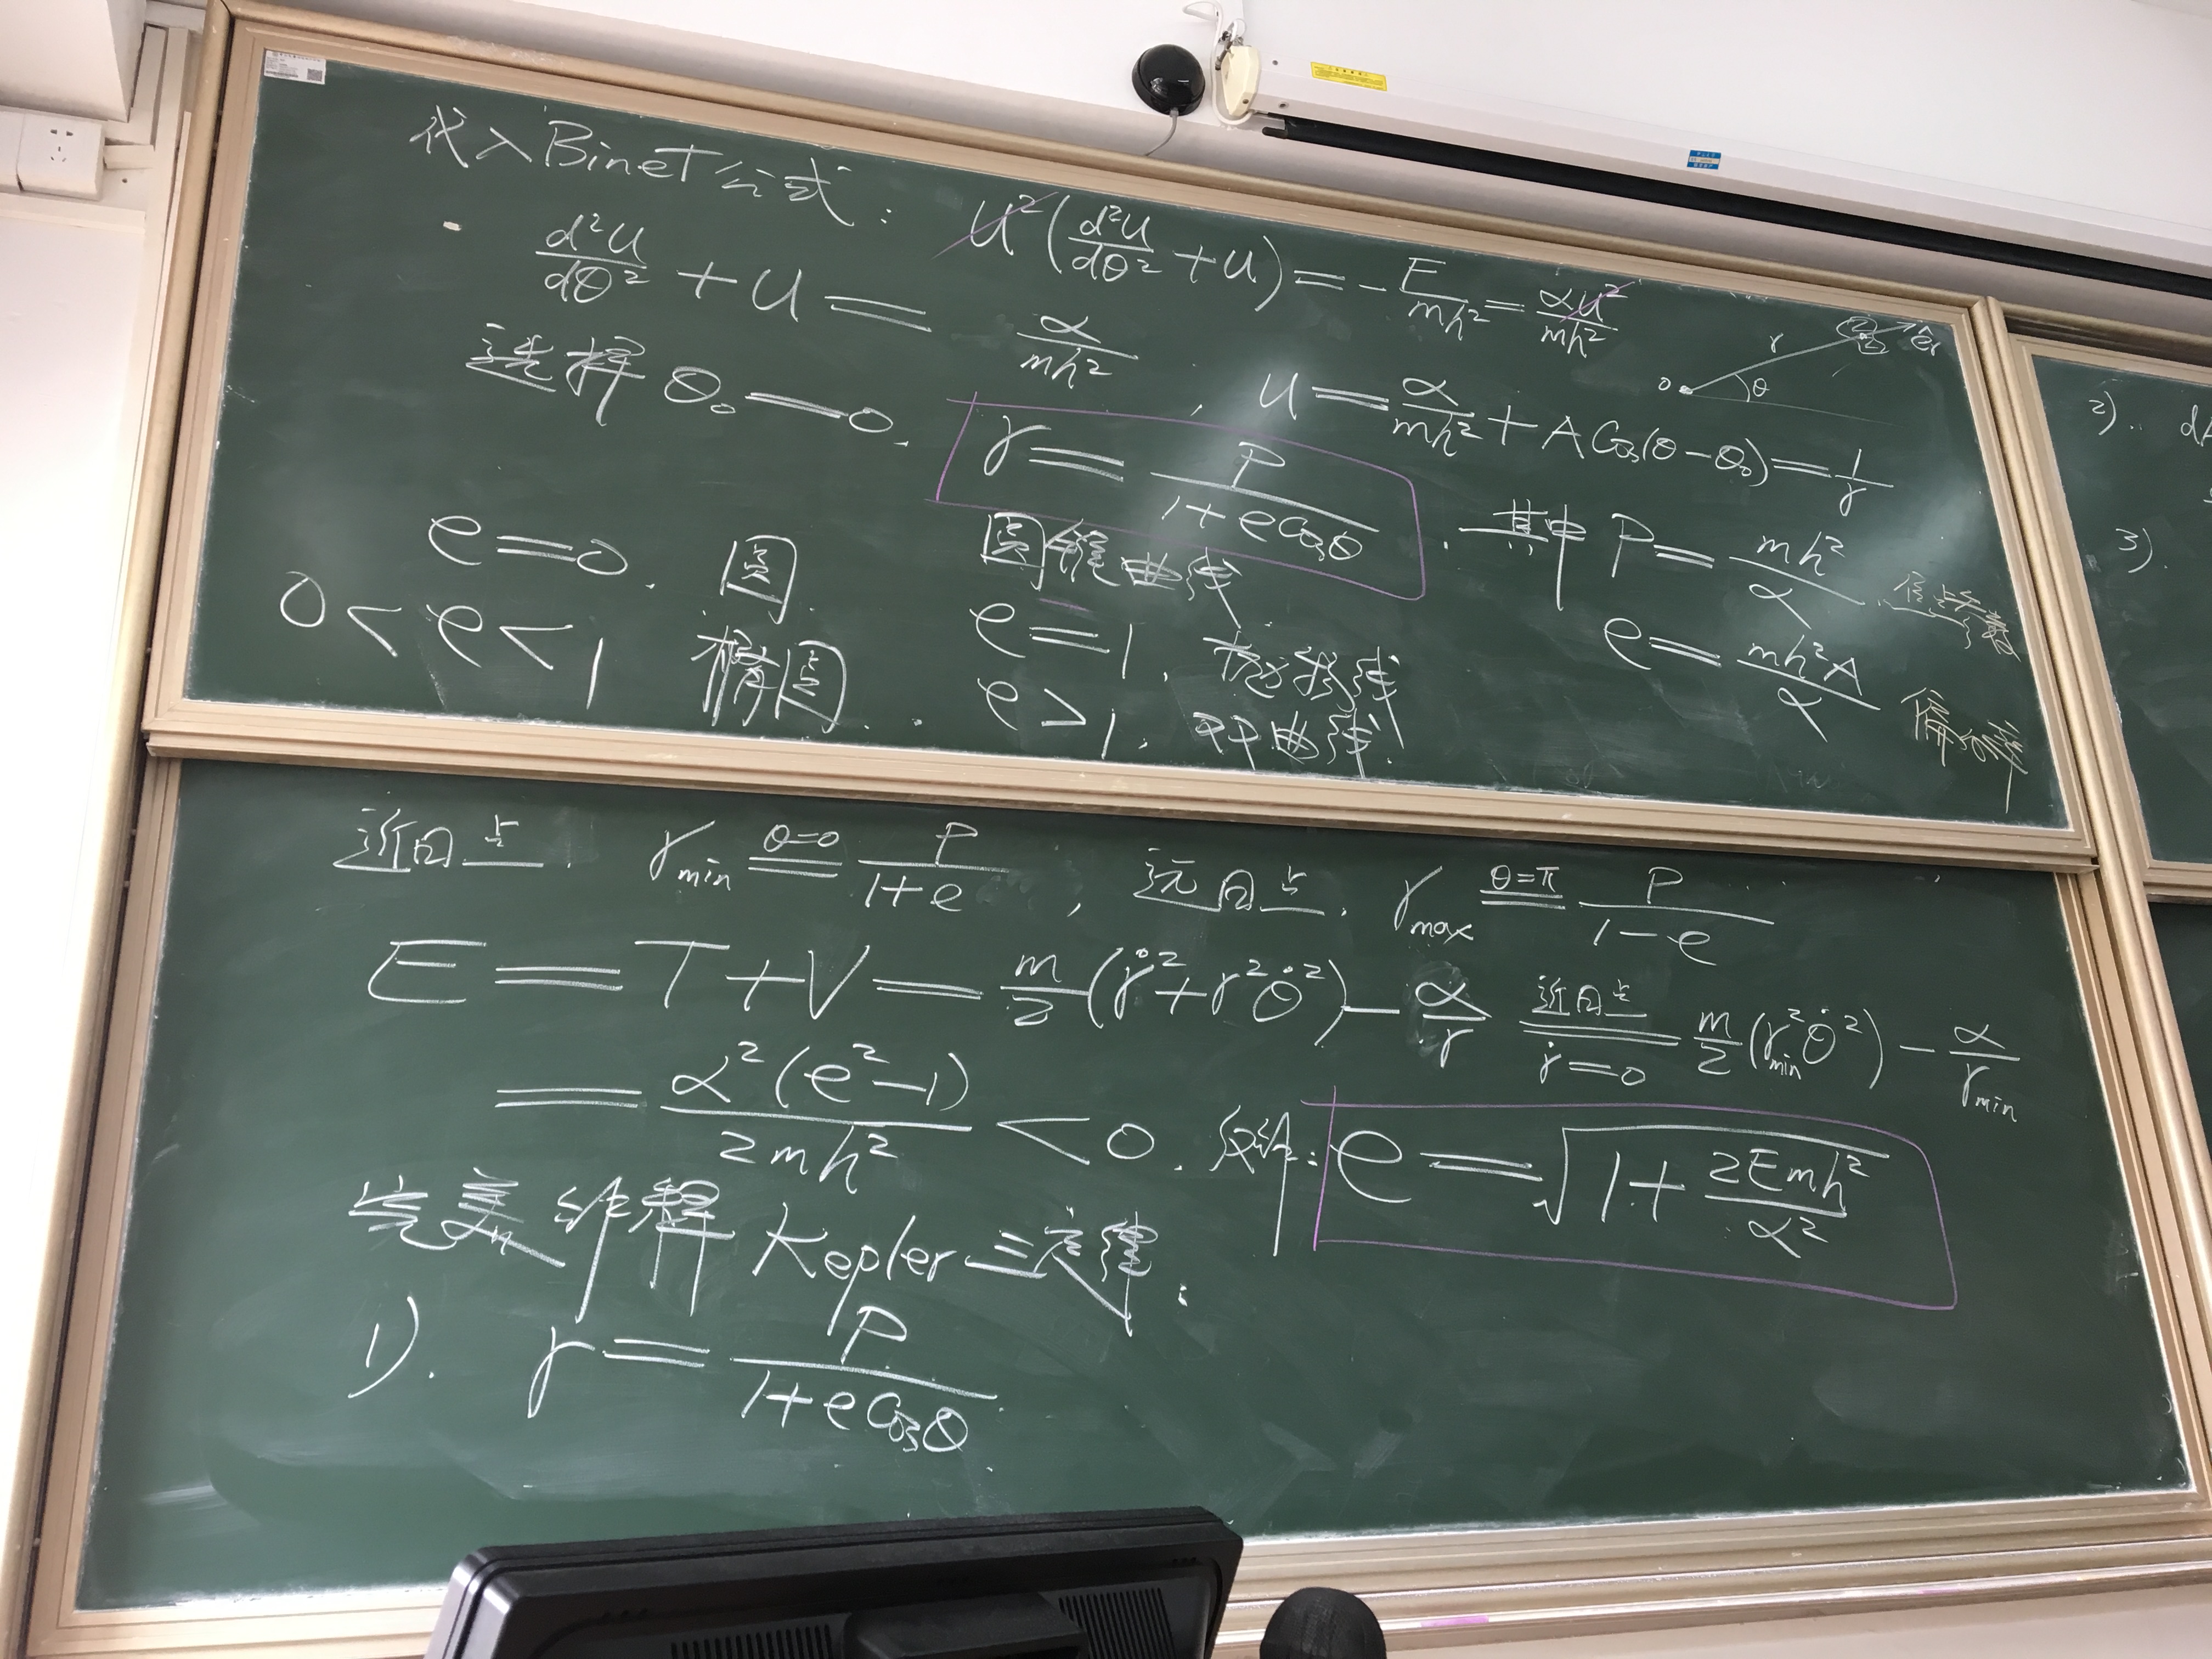 代入Binet公式: u²(d²u/dθ² + u) = -F/mh² = αu²/mh²
d²u/dθ² + u = α/mh² , u = α/mh² + A cos(θ-θ₀) = 1/r
o r θ êr
选择 θ₀ = 0. r = P/(1+e cosθ) . 其中 P = mh²/α
圆锥曲线 e = mh²A/α 偏心率
e = 0. 圆. e = 1. 抛物线
0 < e < 1 椭圆. e > 1. 双曲线.
近日点. r_min =(θ=0)= P/(1+e) , 远日点. r_max =(θ=π)= P/(1-e)
E = T+V = m/2(ṙ²+r²θ̇²) - α/r =(近日点 ṙ=0)= m/2(r²_minθ̇²) - α/r_min
= α²(e²-1)/2mh² < 0. 反解: e = √(1+2Emh²/α²)
完美纬解 Kepler三定律:
1). r = P/(1+e cosθ)
2). dA
3).